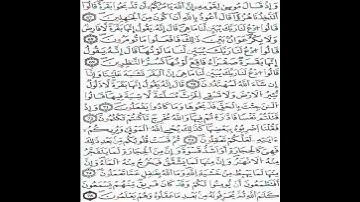 وَإِذْ قَالَ مُوسَىٰ لِقَوْمِهِۦٓ إِنَّ ٱللَّهَ يَأْمُرُكُمْ أَن تَذْبَحُوا۟ بَقَرَةً قَالُوٓا۟
أَتَتَّخِذُنَا هُزُوًا قَالَ أَعُوذُ بِٱللَّهِ أَنْ أَكُونَ مِنَ ٱلْجَـٰهِلِينَ ٦٧
قَالُوا۟ ٱدْعُ لَنَا رَبَّكَ يُبَيِّن لَّنَا مَا هِىَ قَالَ إِنَّهُۥ يَقُولُ إِنَّهَا بَقَرَةٌ لَّا فَارِضٌ
وَلَا بِكْرٌ عَوَانٌۢ بَيْنَ ذَٰلِكَ فَٱفْعَلُوا۟ مَا تُؤْمَرُونَ ٦٨
قَالُوا۟ ٱدْعُ لَنَا رَبَّكَ يُبَيِّن لَّنَا مَا لَوْنُهَا قَالَ إِنَّهُۥ يَقُولُ
إِنَّهَا بَقَرَةٌ صَفْرَآءُ فَاقِعٌ لَّوْنُهَا تَسُرُّ ٱلنَّـٰظِرِينَ ٦٩
قَالُوا۟ ٱدْعُ لَنَا رَبَّكَ يُبَيِّن لَّنَا مَا هِىَ إِنَّ ٱلْبَقَرَ تَشَـٰبَهَ عَلَيْنَا وَإِنَّآ
إِن شَآءَ ٱللَّهُ لَمُهْتَدُونَ ٧٠ قَالَ إِنَّهُۥ يَقُولُ إِنَّهَا بَقَرَةٌ لَّا ذَلُولٌ
تُثِيرُ ٱلْأَرْضَ وَلَا تَسْقِى ٱلْحَرْثَ مُسَلَّمَةٌ لَّا شِيَةَ فِيهَا قَالُوا۟
ٱلْـَٔـٰنَ جِئْتَ بِٱلْحَقِّ فَذَبَحُوهَا وَمَا كَادُوا۟ يَفْعَلُونَ ٧١
وَإِذْ قَتَلْتُمْ نَفْسًا فَٱدَّٰرَْٰٔتُمْ فِيهَا وَٱللَّهُ مُخْرِجٌ مَّا كُنتُمْ تَكْتُمُونَ ٧٢
فَقُلْنَا ٱضْرِبُوهُ بِبَعْضِهَا كَذَٰلِكَ يُحْىِ ٱللَّهُ ٱلْمَوْتَىٰ وَيُرِيكُمْ
ءَايَـٰتِهِۦ لَعَلَّكُمْ تَعْقِلُونَ ٧٣ ثُمَّ قَسَتْ قُلُوبُكُم مِّنۢ بَعْدِ ذَٰلِكَ
فَهِىَ كَٱلْحِجَارَةِ أَوْ أَشَدُّ قَسْوَةً وَإِنَّ مِنَ ٱلْحِجَارَةِ لَمَا يَتَفَجَّرُ
مِنْهُ ٱلْأَنْهَـٰرُ وَإِنَّ مِنْهَا لَمَا يَشَّقَّقُ فَيَخْرُجُ مِنْهُ ٱلْمَآءُ وَإِنَّ
مِنْهَا لَمَا يَهْبِطُ مِنْ خَشْيَةِ ٱللَّهِ وَمَا ٱللَّهُ بِغَـٰفِلٍ عَمَّا تَعْمَلُونَ ٧٤
أَفَتَطْمَعُونَ أَن يُؤْمِنُوا۟ لَكُمْ وَقَدْ كَانَ فَرِيقٌ مِّنْهُمْ يَسْمَعُونَ
كَلَـٰمَ ٱللَّهِ ثُمَّ يُحَرِّفُونَهُۥ مِنۢ بَعْدِ مَا عَقَلُوهُ وَهُمْ يَعْلَمُونَ ٧٥